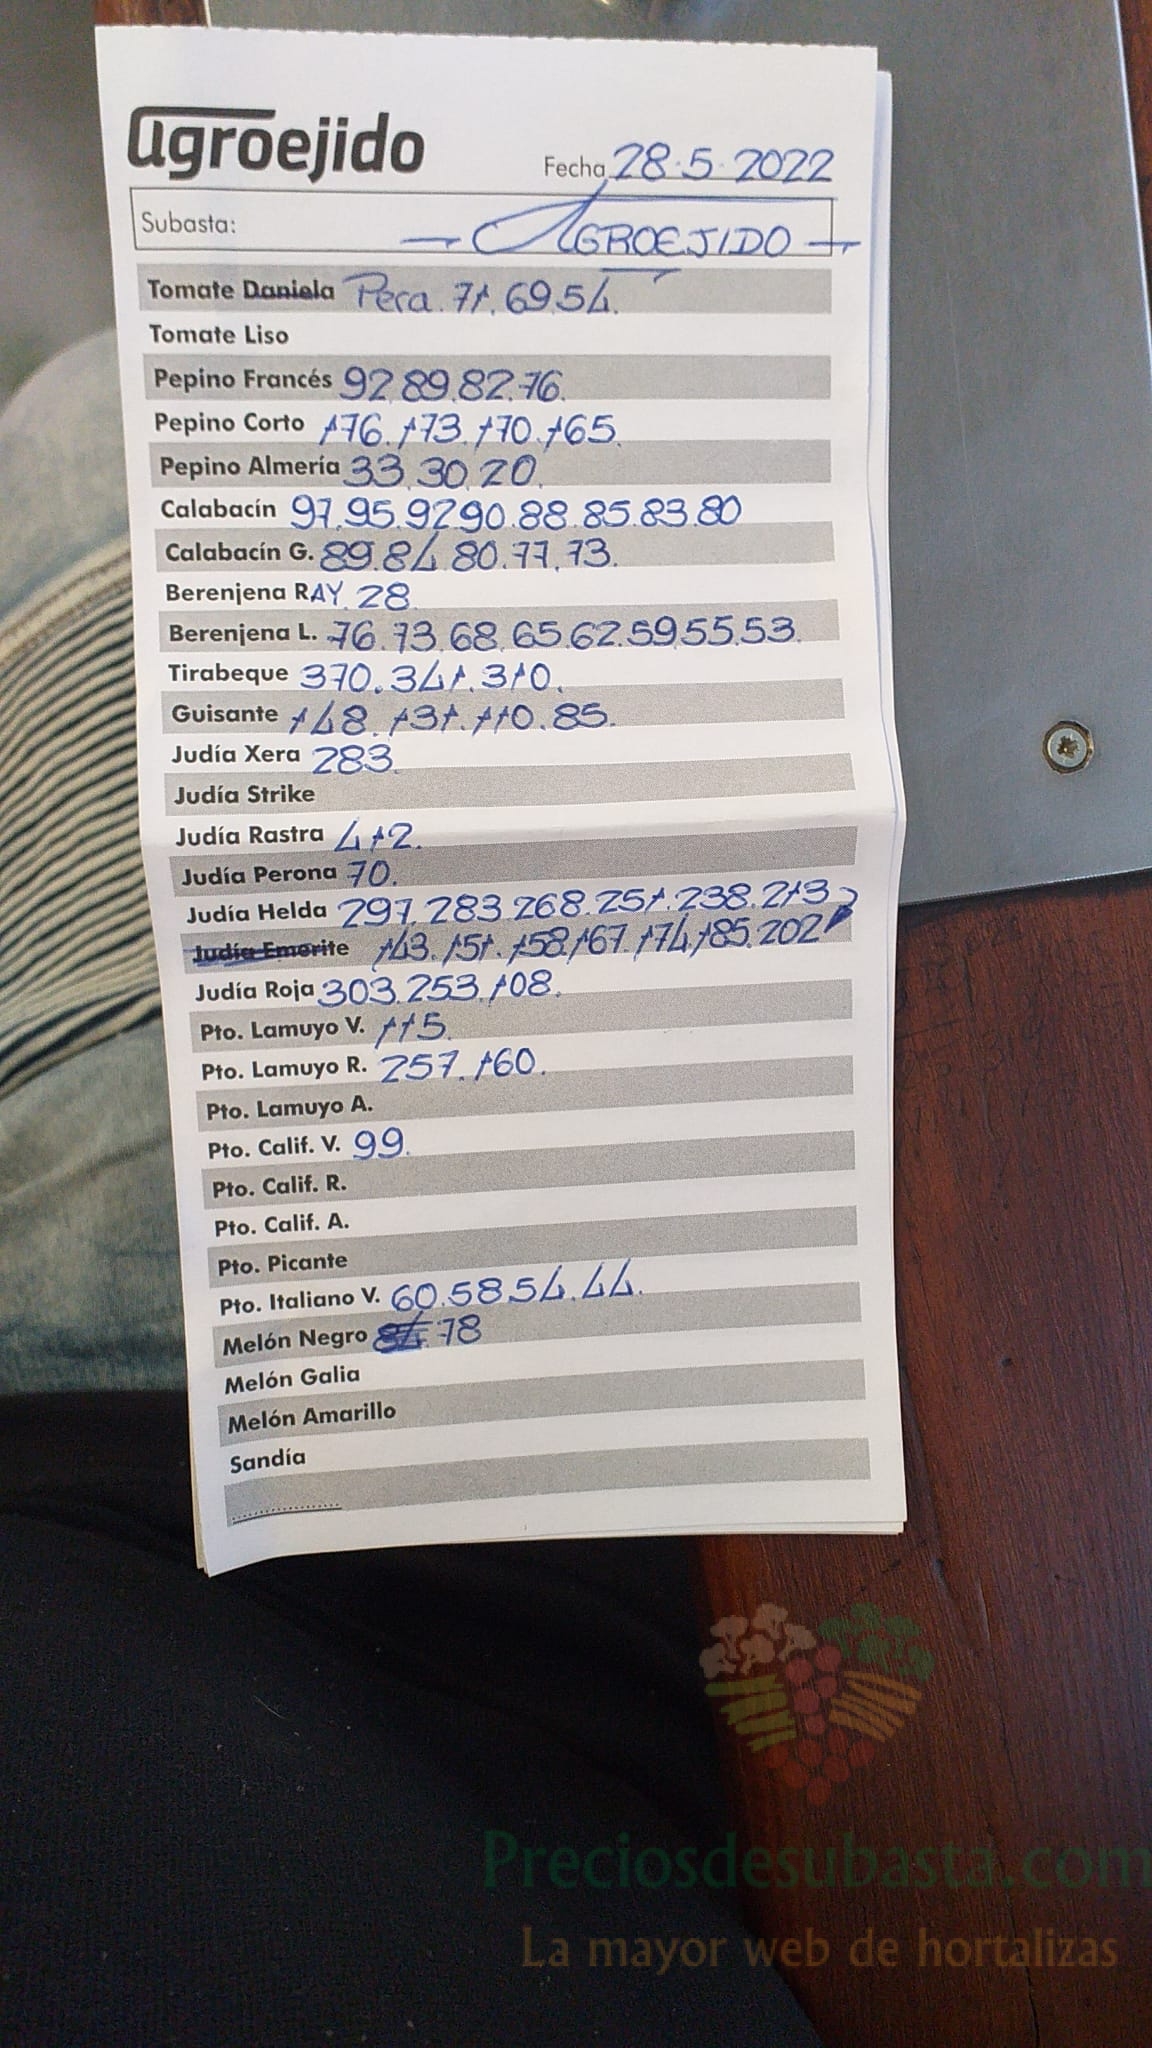 agroejido
Fecha 28.5.2022
Subasta: AGROEJIDO
Tomate Daniela Pera. 71.69.54.
Tomate Liso
Pepino Francés 92.89.82.76.
Pepino Corto 176.173.170.165.
Pepino Almería 33.30.20.
Calabacín 97.95.92.90.88.85.83.80
Calabacín G. 89.84.80.77.73.
Berenjena RAY. 28
Berenjena L. 76.73.68.65.62.59.55.53.
Tirabeque 370.341.310.
Guisante 148.131.110.85.
Judía Xera 283.
Judía Strike
Judía Rastra 412.
Judía Perona 70.
Judía Helda 297.283.268.251.238.213
Judía Emerite 143.151.158.167.174.185.202
Judía Roja 303.253.108.
Pto. Lamuyo V. 115.
Pto. Lamuyo R. 257.160.
Pto. Lamuyo A.
Pto. Calif. V. 99.
Pto. Calif. R.
Pto. Calif. A.
Pto. Picante
Pto. Italiano V. 60.58.54.44.
Melón Negro 84.78
Melón Galia
Melón Amarillo
Sandía
Preciosdesubasta.com
La mayor web de hortalizas